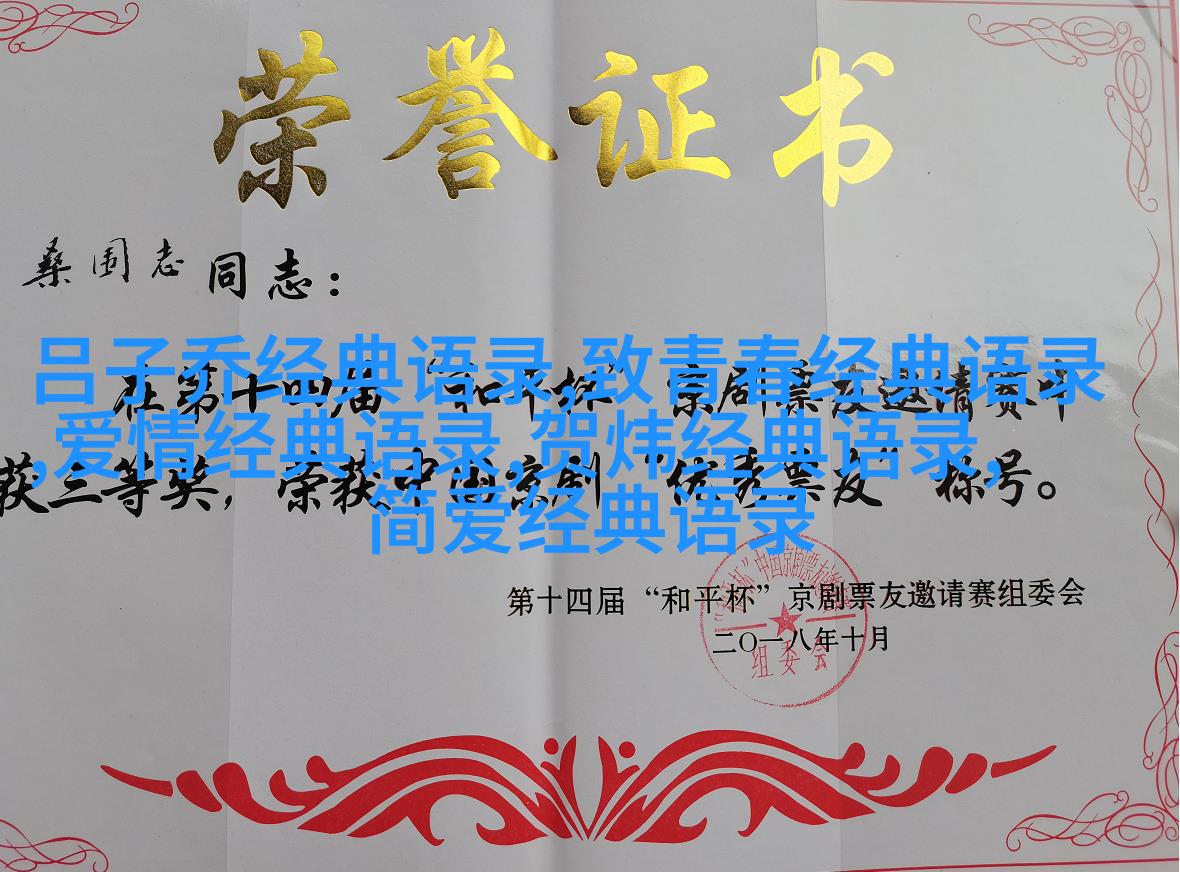 荣誉证书
桑围志 同志：
吕子乔经典语录,致青春经典语录
,爱情经典语录,贺炜经典语录,
简爱经典语录
在第十四届“和平杯”京剧票友邀请赛中
获三等奖，荣获中国京剧“优秀票友”称号。
第十四届“和平杯”京剧票友邀请赛组委会
二〇一八年十月
组委会